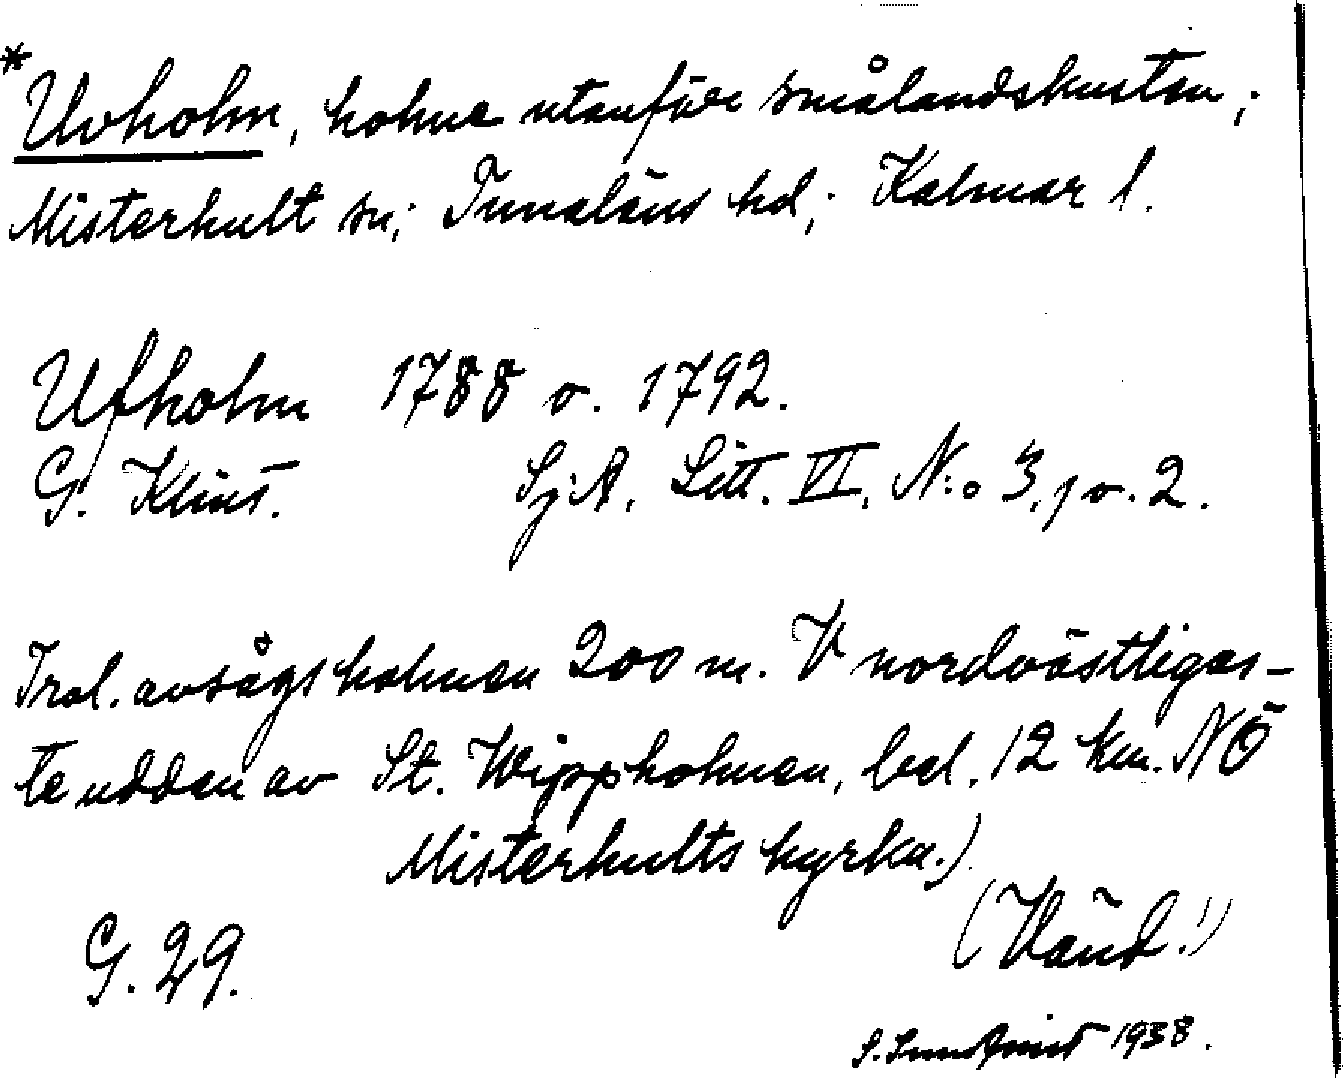 *Uvholm, holme utanför smålandskusten;
Misterhult sn; Tunaläns hd; Kalmar l.
Ufholm 1788 o. 1792.
G. Klint. SjA. Litt. VI. N:o 3, 1 o. 2.
Trol. avsågs holmen 200 m. V nordvästligas-
te udden av St. Wippholmen, bel. 12 km. NÖ
Misterhults kyrka.)
(Vänd!)
G. 29.
S. Sundqvist 1938.